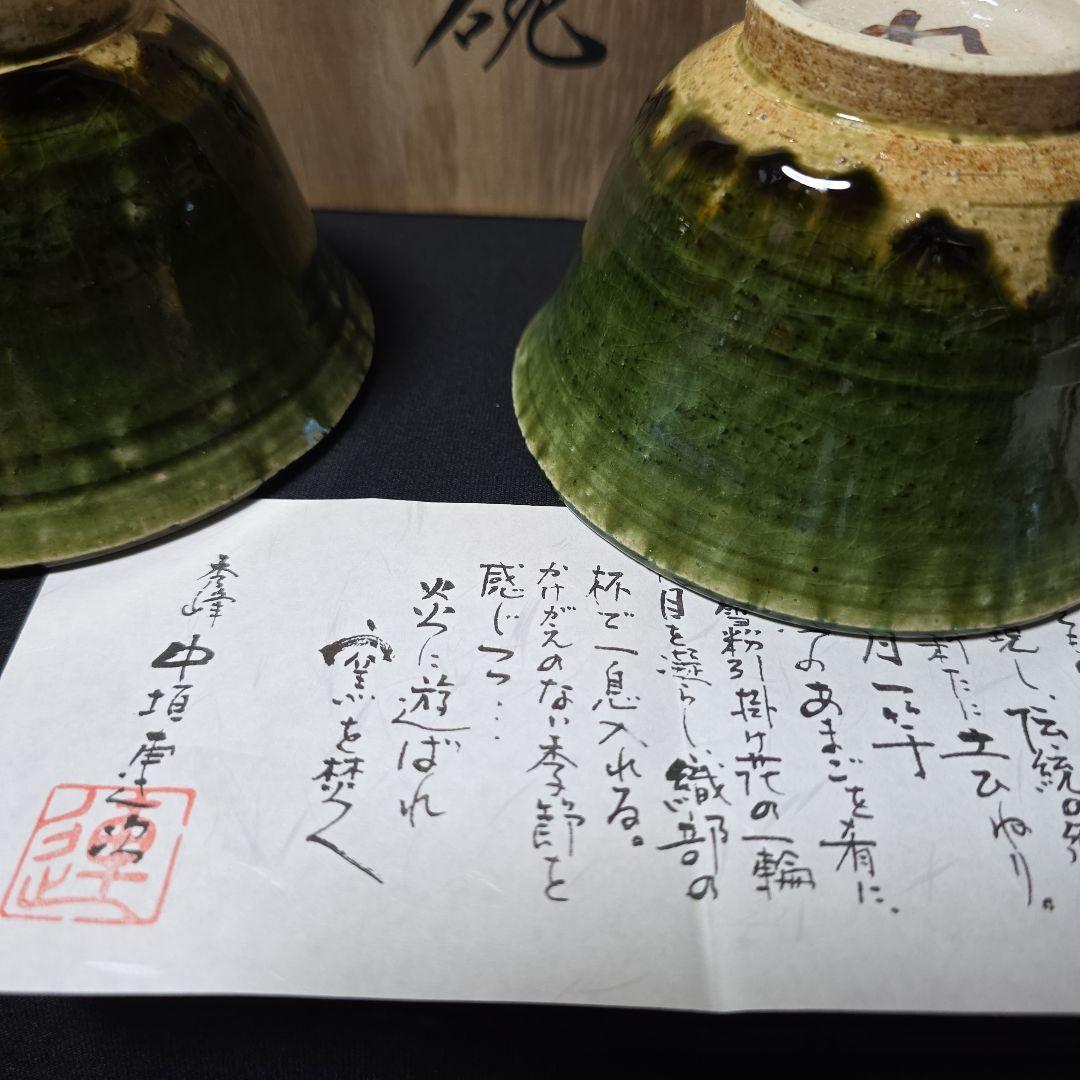 碗
焼し、伝統の
新たに土ひねり。
月一竿
のあまごを肴に、
雪粉引掛け花の一輪
目を凝らし、織部の
杯で一息入れる。
かけがえのない季節を
感じつつ…
炎に遊ばれ
窯を焚く
秀峰 中垣連次
連